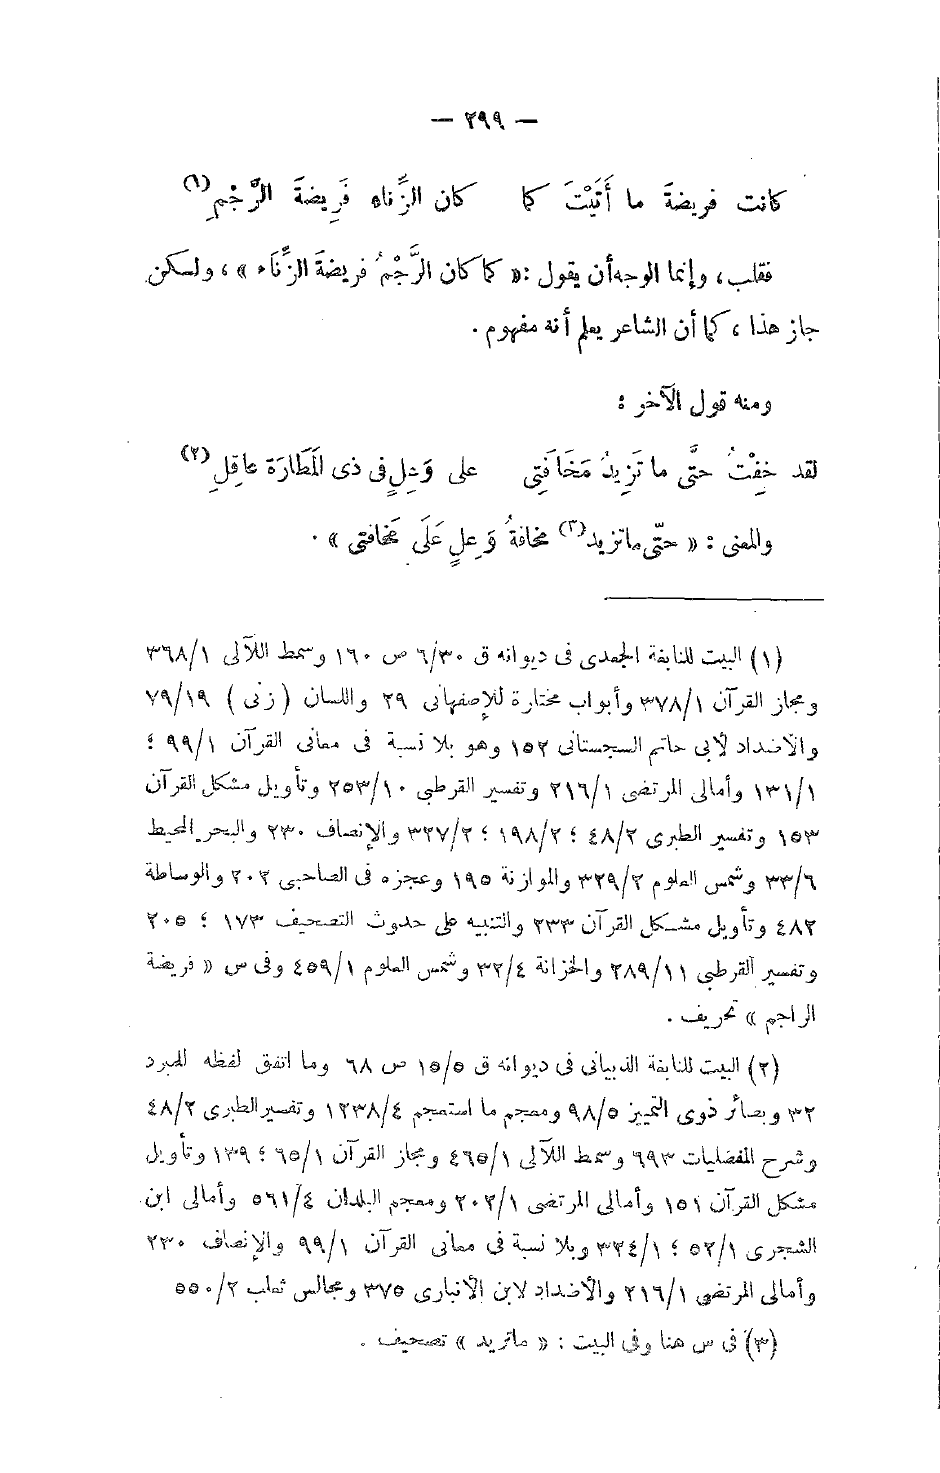 — ٢٩٩ —
كانت فريضةَ ما أَتَيْتَ كما كان الزِّناء فَرِيضةَ الرَّجْمِ (١)
فقلب، وإنما الوجه أن يقول : « كما كان الرَّجْمُ فريضةَ الزِّنَاء » ، ولسكن
جاز هذا ، كما أن الشاعر يعلم أنه مفهوم .
ومنه قول الآخر :
لقد خِفْتُ حتَّى ما تَزِيدُ مَخَافَتِى على وَعِلٍ فى ذى المَطَارَة عاقِلِ (٢)
والمعنى : « حتّى ماتزيد (٣) مخافةُ وَعِلٍ عَلَى مخافتى » .
(١) البيت للنابغة الجعدى فى ديوانه ق ٦/٣٠ ص ١٦٠ وسمط اللآلى ٣٦٨/١
ومجاز القرآن ٣٧٨/١ وأبواب مختارة للإصفهانى ٢٩ واللسان ( زنى ) ٧٩/١٩
والأضداد لأبى حاتم السجستانى ١٥٢ وهو بلا نسبة فى معانى القرآن ٩٩/١ ؛
١٣١/١ وأمالى المرتضى ٢١٦/١ وتفسير القرطبى ٢٥٣/١٠ وتأويل مشكل القرآن
١٥٣ وتفسير الطبرى ٤٨/٢ ؛ ١٩٨/٢ ؛ ٣٢٧/٢ والإنصاف ٢٣٠ والبحر المحيط
٣٣/٦ وشمس العلوم ٣٢٩/٢ والموازنة ١٩٥ وعجزه فى الصاحبى ٢٠٢ والوساطة
٤٨٢ وتأويل مشكل القرآن ٢٣٣ والتنبيه على حدوث التصحيف ١٧٣ ؛ ٢٠٥
وتفسير القرطبى ٢٨٩/١١ والخزانة ٣٢/٤ وشمس العلوم ٤٥٩/١ وفى س « فريضة
الراجم » تحريف .
(٢) البيت للنابغة الذبيانى فى ديوانه ق ١٥/٥ ص ٦٨ وما اتفق لفظه للمبرد
٣٢ وبصائر ذوى التمييز ٩٨/٥ ومعجم ما استعجم ١٢٣٨/٤ وتفسير الطبرى ٤٨/٢
وشرح المفضليات ٦٩٣ وسمط اللآلى ٤٦٥/١ ومجاز القرآن ٦٥/١ ؛ ١٣٩ وتأويل
مشكل القرآن ١٥١ وأمالى المرتضى ٢٠٢/١ ومعجم البلدان ٥٦١/٤ وأمالى ابن
الشجرى ٥٢/١ ؛ ٣٢٤/١ وبلا نسبة فى معانى القرآن ٩٩/١ والإنصاف ٢٣٠
وأمالى المرتضى ٢١٦/١ والأضداد لابن الأنبارى ٣٧٥ ومجالس ثعلب ٥٥٠/٢
(٣) فى س هنا وفى البيت : « ماتريد » تصحيف .